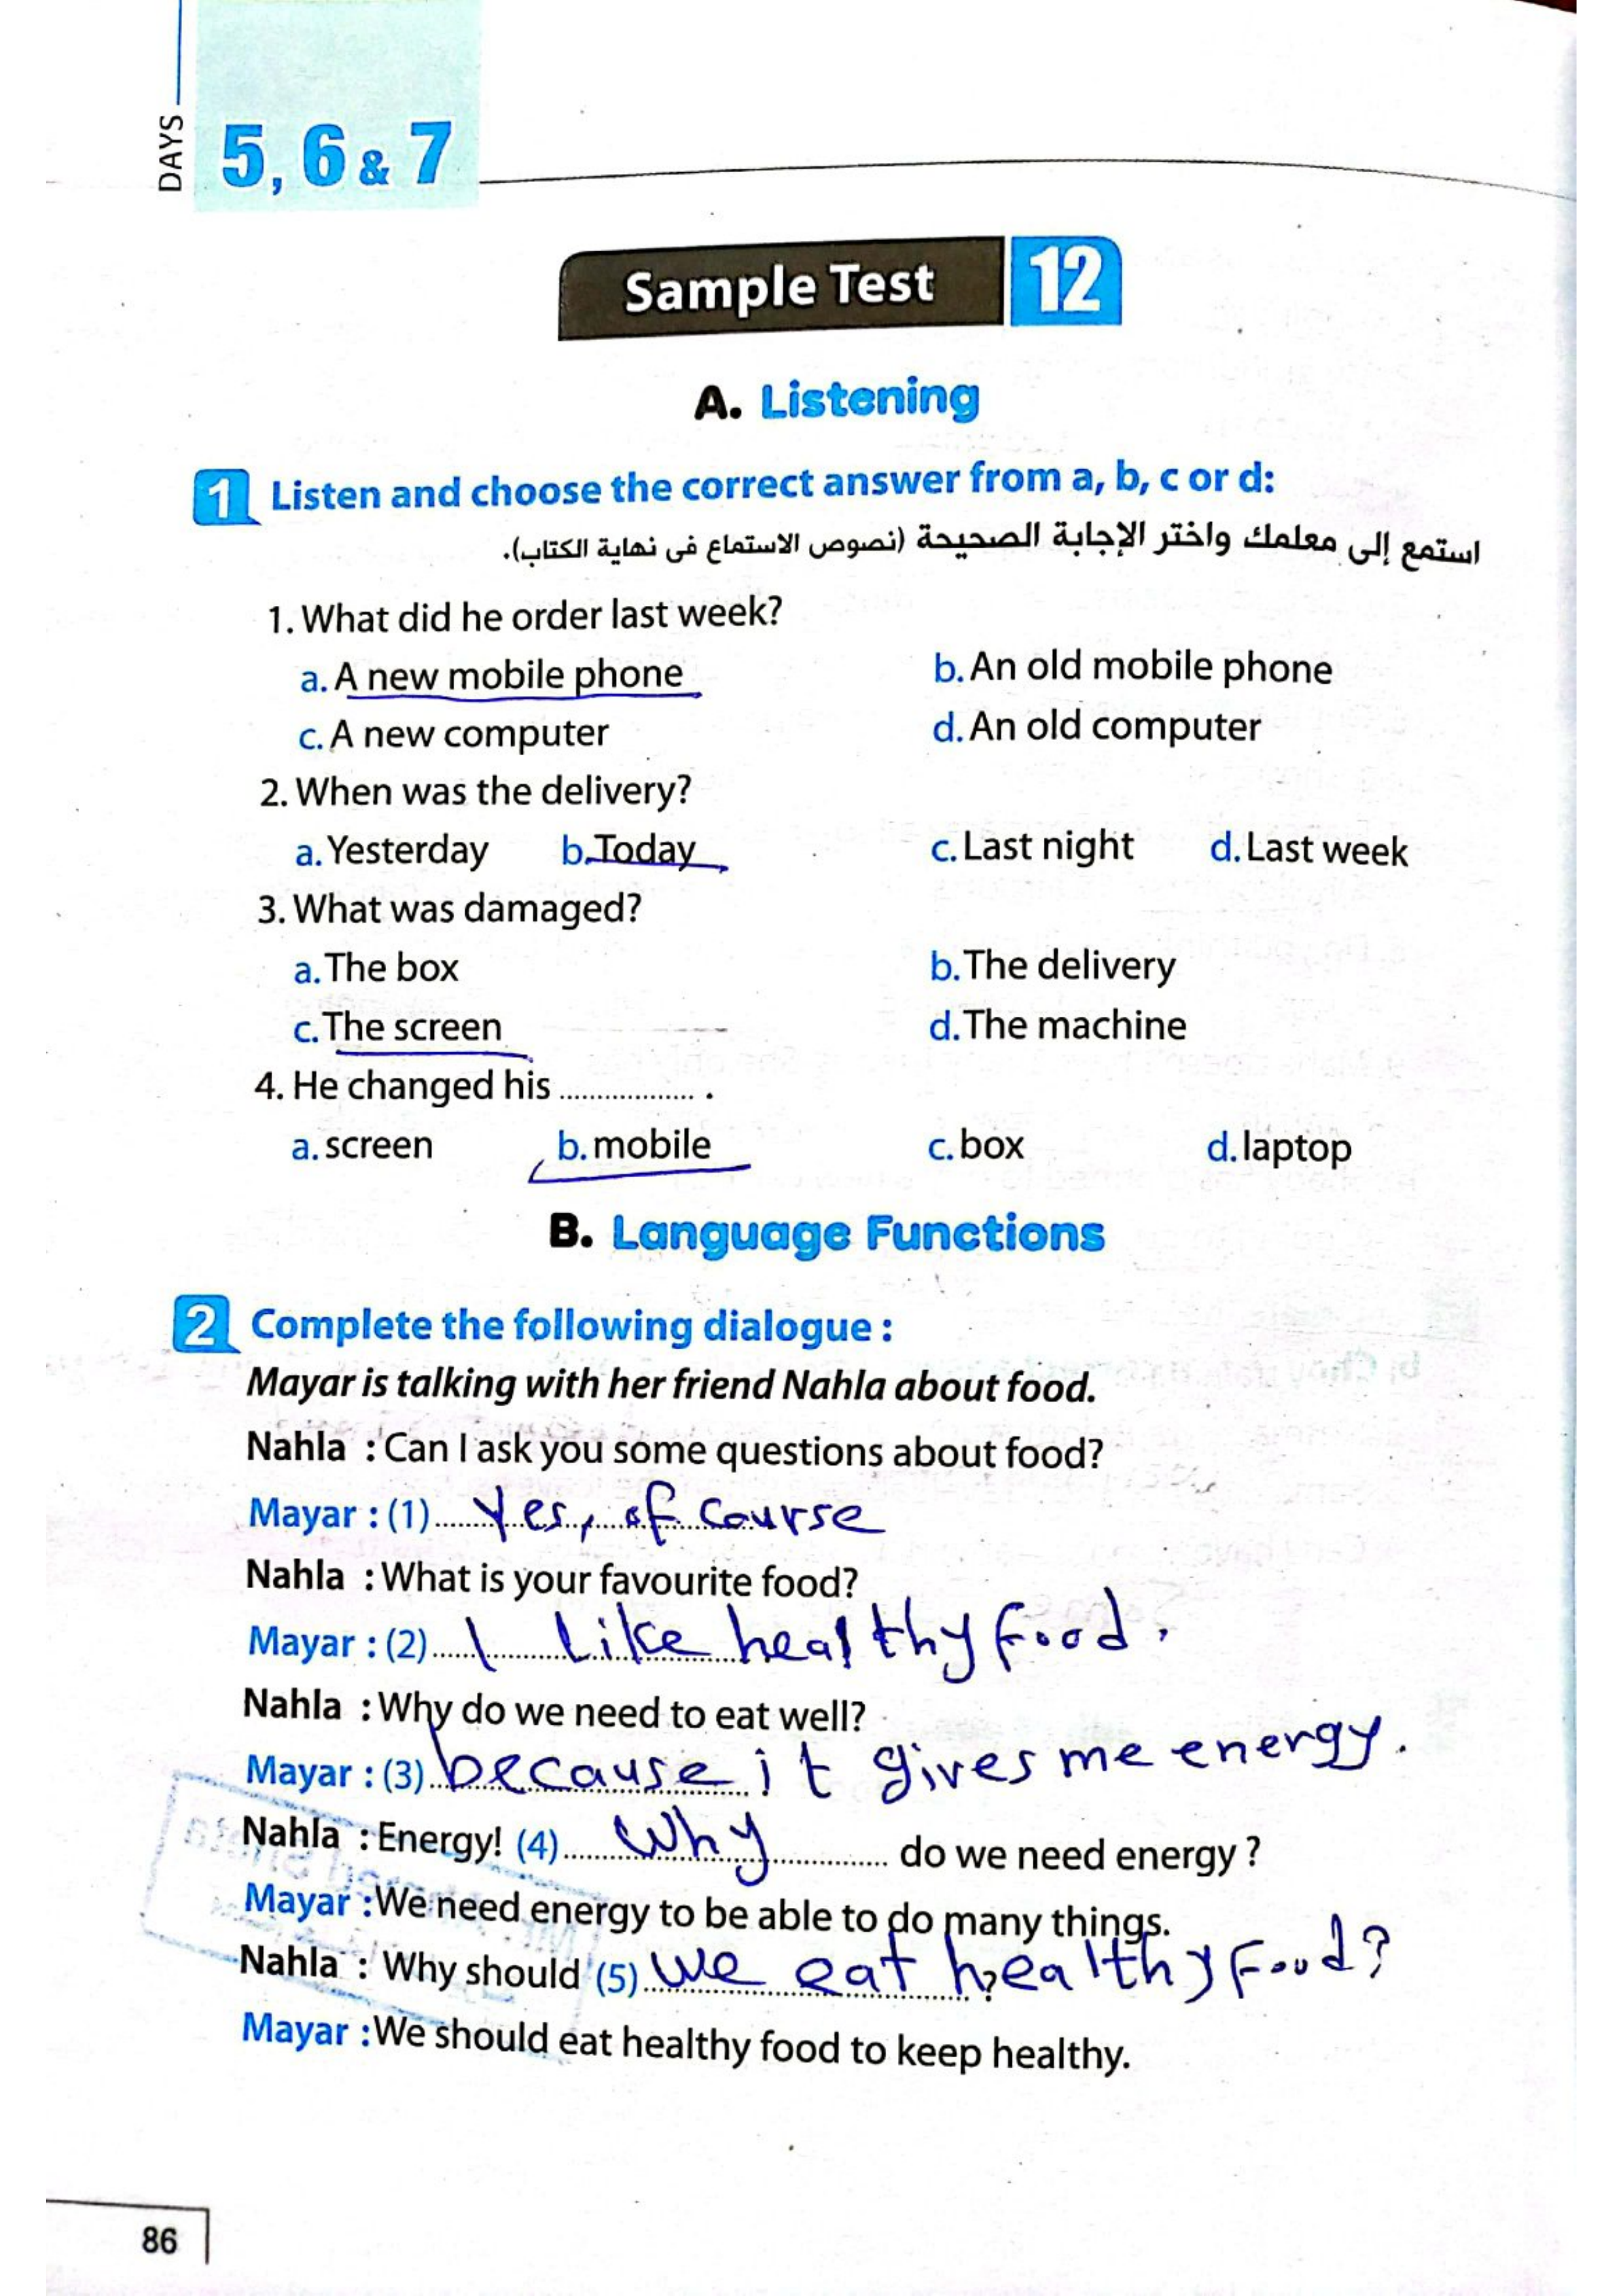 DAYS
5, 6 & 7
Sample Test 12
A. Listening
1 Listen and choose the correct answer from a, b, c or d:
استمع إلى معلمك واختر الإجابة الصحيحة (نصوص الاستماع فى نهاية الكتاب).
1. What did he order last week?
a. A new mobile phone b. An old mobile phone
c. A new computer d. An old computer
2. When was the delivery?
a. Yesterday b. Today c. Last night d. Last week
3. What was damaged?
a. The box b. The delivery
c. The screen d. The machine
4. He changed his .................. .
a. screen b. mobile c. box d. laptop
B. Language Functions
2 Complete the following dialogue :
Mayar is talking with her friend Nahla about food.
Nahla : Can I ask you some questions about food?
Mayar : (1) Yes, of course
Nahla : What is your favourite food?
Mayar : (2) I like healthy food.
Nahla : Why do we need to eat well?
Mayar : (3) because it gives me energy.
Nahla : Energy! (4) Why do we need energy ?
Mayar : We need energy to be able to do many things.
Nahla : Why should (5) we eat healthy food? ?
Mayar : We should eat healthy food to keep healthy.
86